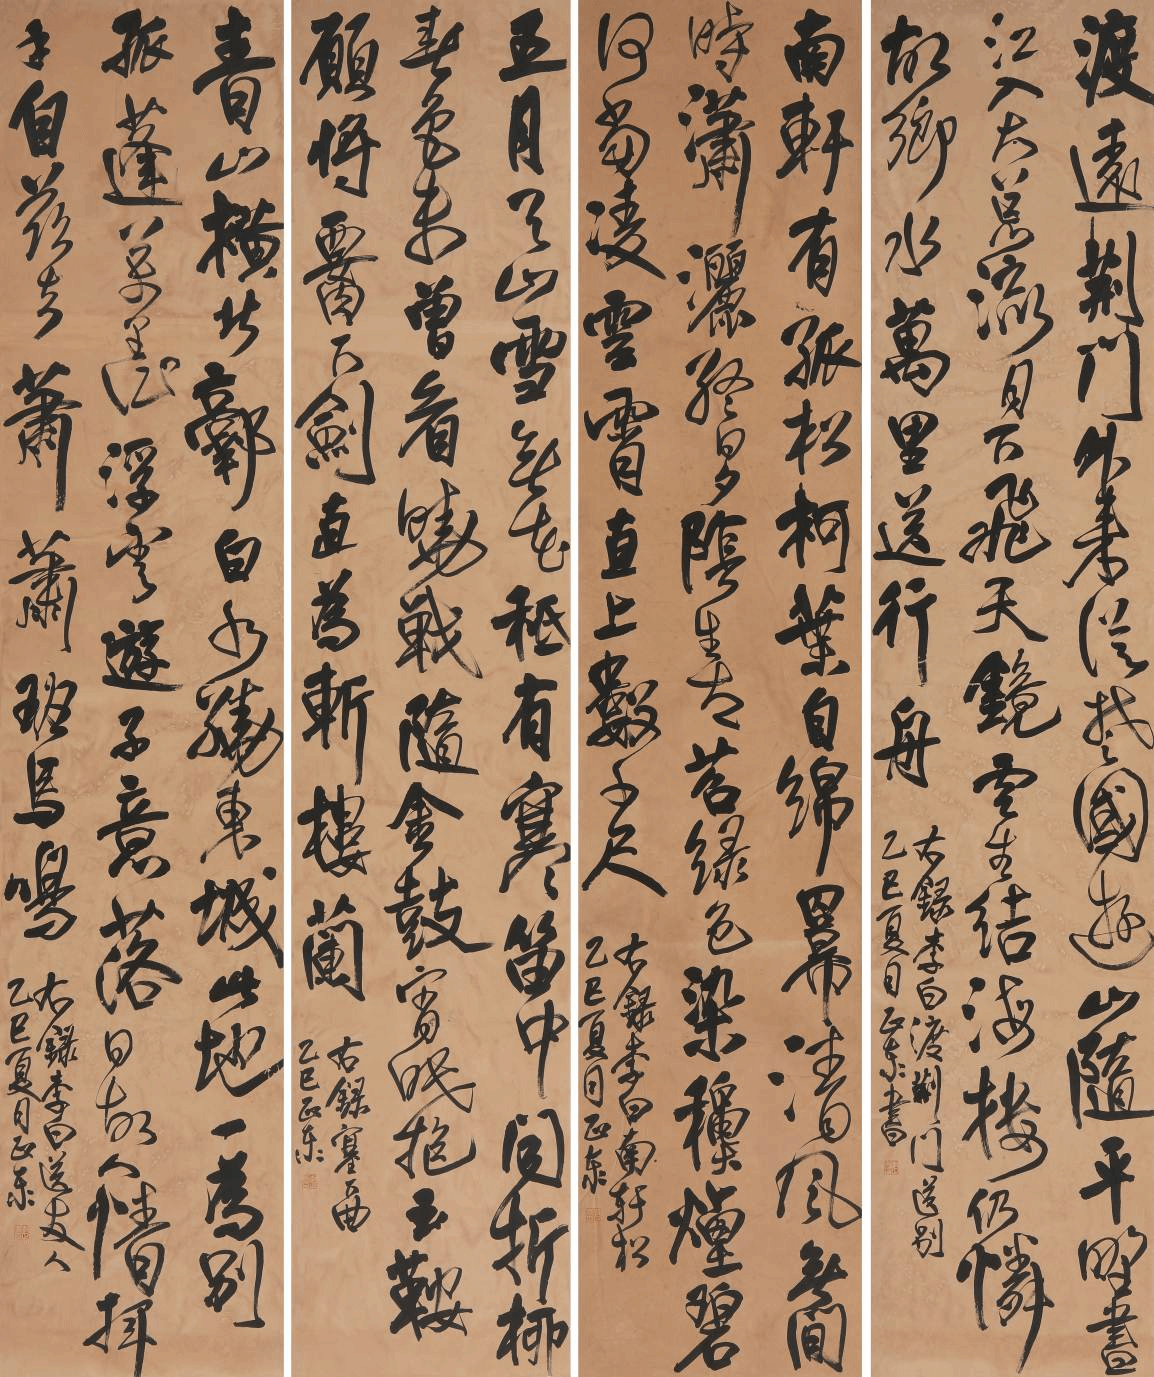 渡遠荆門外來從楚國遊山隨平野盡
江入大荒流月下飛天鏡雲生結海樓仍憐
故鄉水萬里送行舟
右錄李白渡荆門送別
乙巳夏月正東書
南軒有孤松柯葉自綿冪清風無閒
時瀟灑終日夕陰生古苔綠色染穐煙碧
何當凌雲霄直上數千尺
右錄李白南軒松
乙巳夏月正東
五月天山雪無花秪有寒笛中聞折柳
春色未曾看曉戰隨金鼓宵眠抱玉鞍
願將腰下劍直為斬樓蘭
右錄塞下曲
乙巳正東
青山橫北郭白水繞東城此地一為別
孤蓬萬里征浮雲遊子意落日故人情揮
手自茲去蕭蕭班馬鳴
右錄李白送友人
乙巳夏月正東